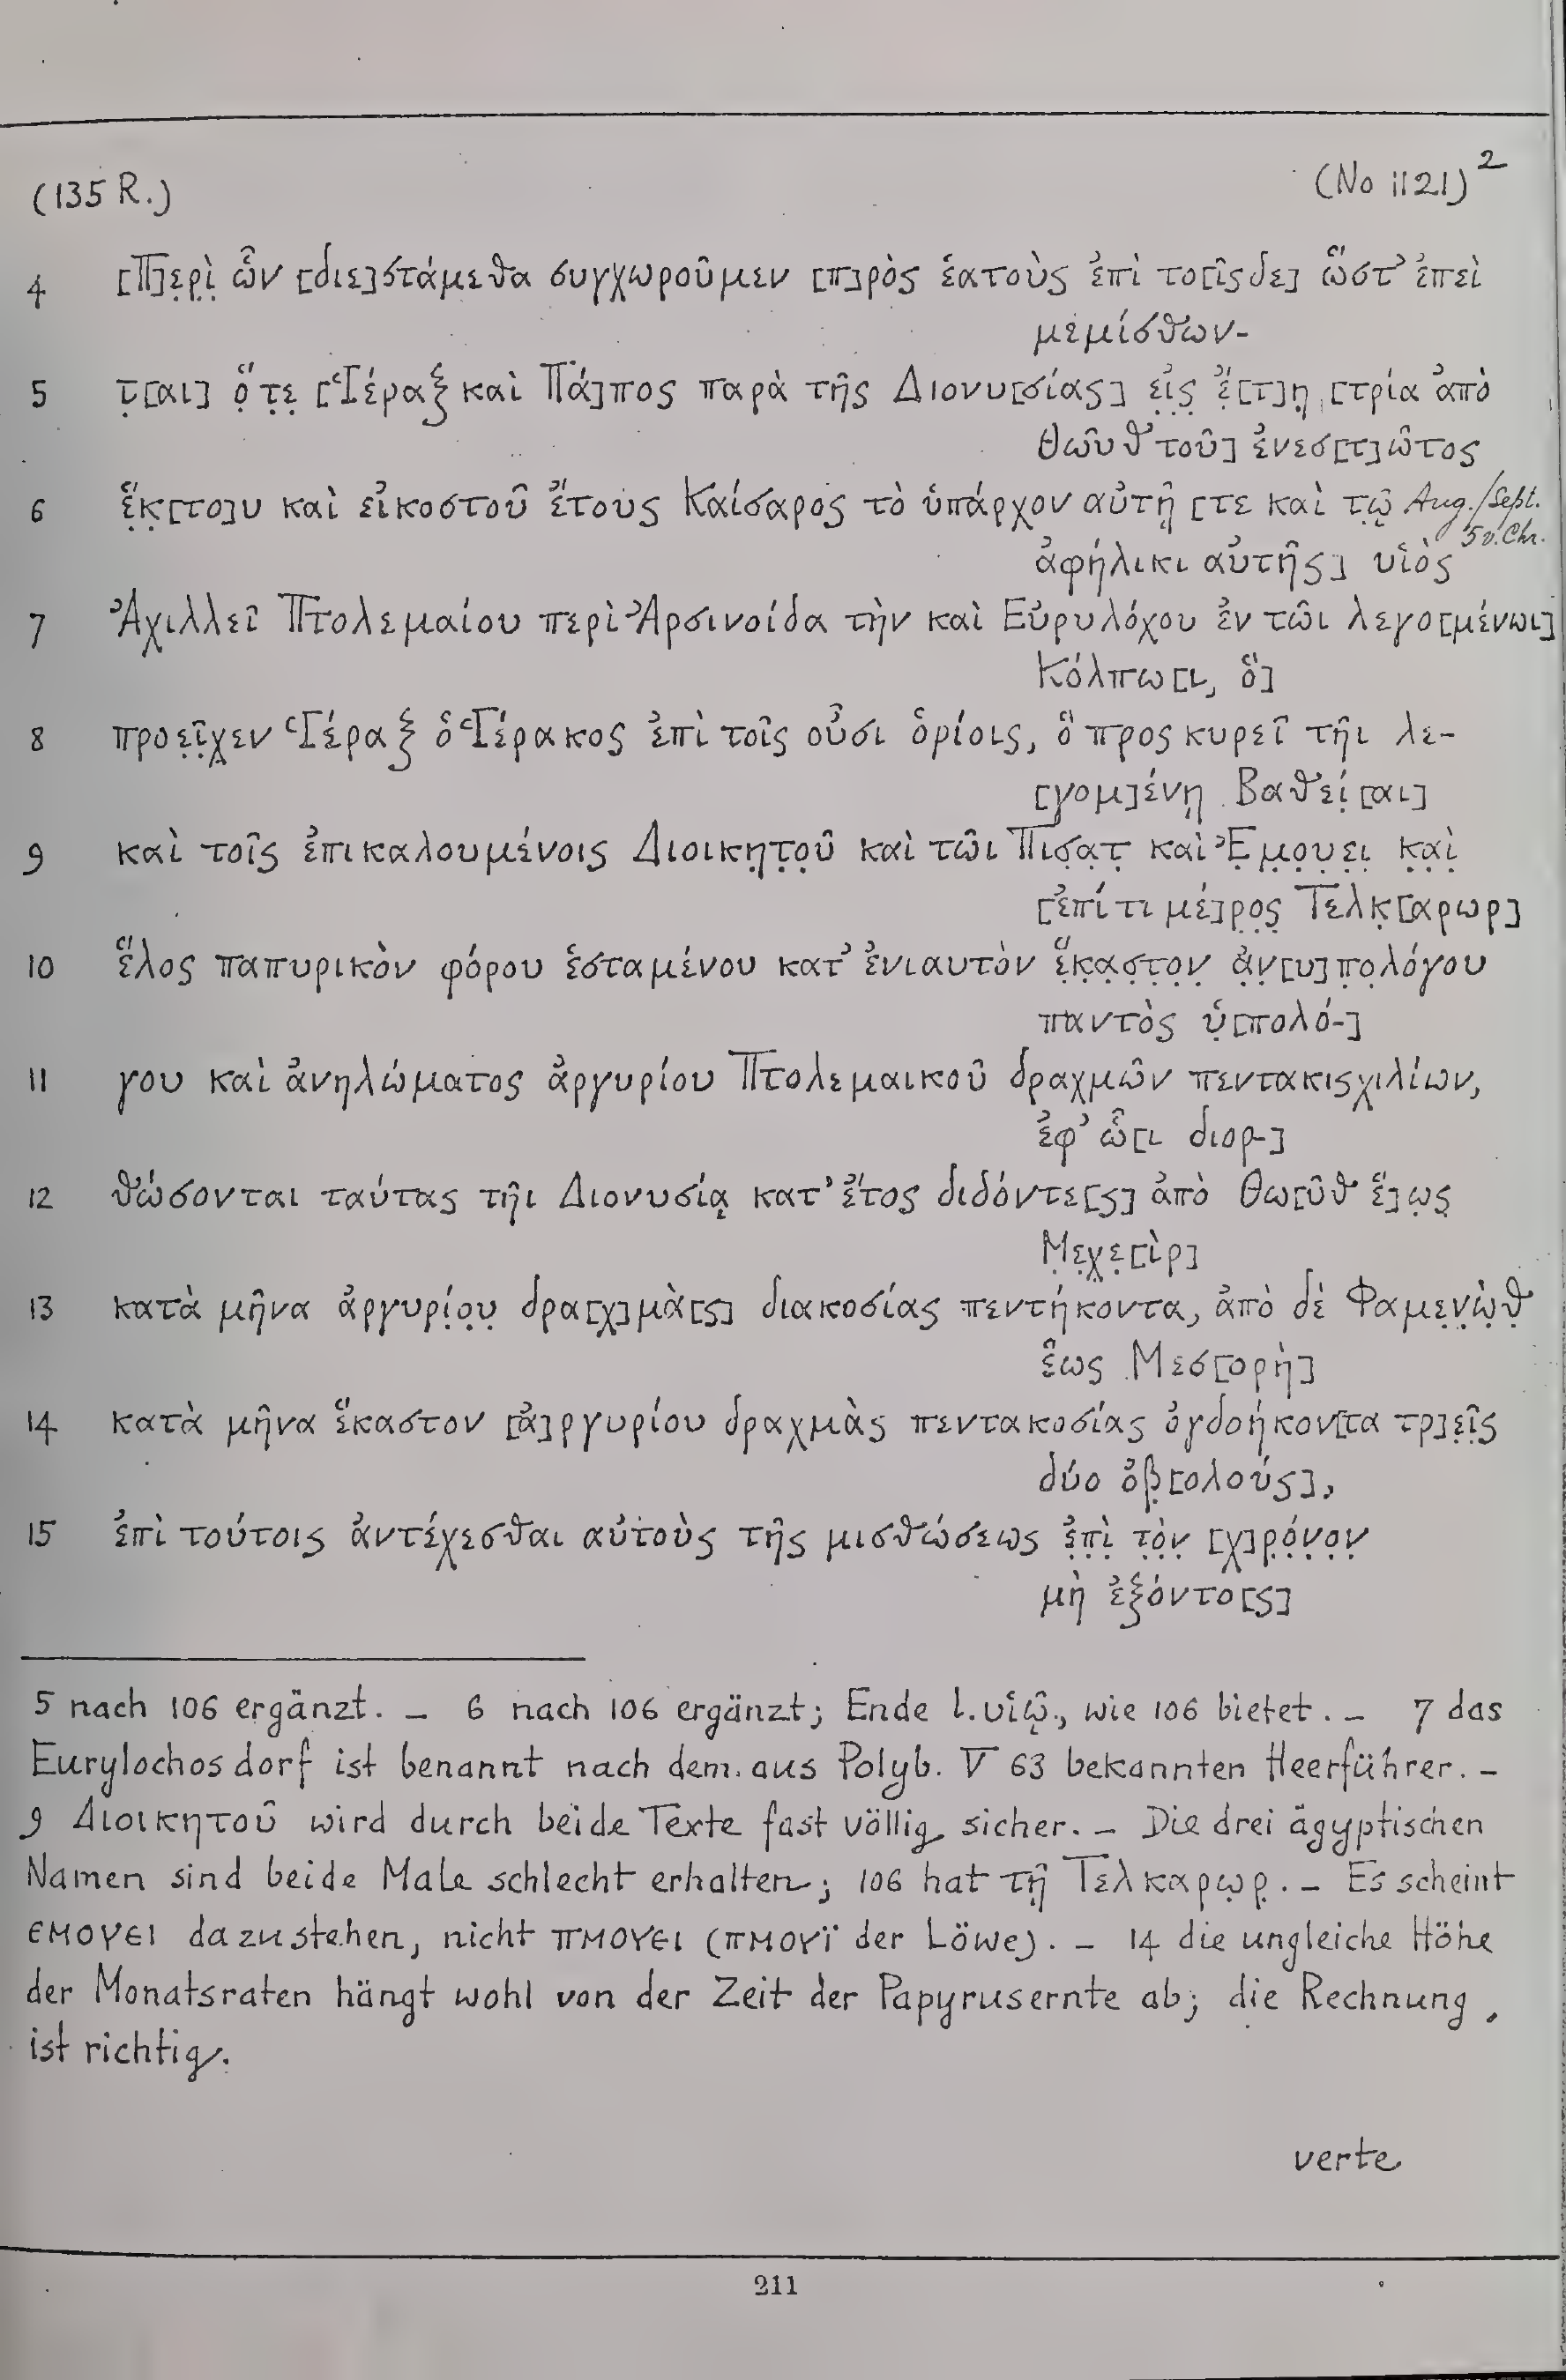 (135 R.) (No 1121)²
4 [Π]ε̣ρ̣ὶ̣ ὧν [διε]στάμεθα συγχωροῦμεν [π]ρὸς ἑατοὺς ἐπὶ το[ῖσδε] ὥστ' ἐπεὶ
μεμίσθων-
5 τ̣[αι] ὅ̣ τ̣ε̣ [Ἱέραξ καὶ Πά]πος παρὰ τῆς Διονυ[σίας] ε̣ἰ̣ς̣ ἔ̣[τ]η̣ [τρία ἀπὸ
Θωῦθ τοῦ] ἐνεσ[τ]ῶτος
6 ἕ̣κ̣[το]υ καὶ εἰκοστοῦ ἔτους Καίσαρος τὸ ὑπάρχον αὐτῇ [τε καὶ τῷ Aug./Sept.
5 v. Chr.
ἀφήλικι αὐτῆς] υἱὸς
7 Ἀχιλλεῖ Πτολεμαίου περὶ Ἀρσινοίδα τὴν καὶ Εὐρυλόχου ἐν τῶι λεγο[μένωι]
Κόλπω[ι, ὃ]
8 προε̣ῖ̣χ̣εν Ἱέραξ ὁ Ἱέρακος ἐπὶ τοῖς οὖσι ὁρίοις, ὃ προςκυρεῖ τῆι λε-
[γομ]ένῃ Βαθεί̣[αι]
9 καὶ τοῖς ἐπικαλουμένοις Διοικη̣τ̣ο̣ῦ καὶ τῶι Πισ̣α̣τ̣ καὶ Ἐ̣μ̣ο̣υ̣ε̣ι̣ κ̣α̣ὶ̣
[ἐπί τι μέ]ρ̣ο̣ς̣ Τελκ̣[αρωρ]
10 ἕλος παπυρικὸν φόρου ἑσταμένου κατ' ἐνιαυτὸν ἕ̣κ̣α̣σ̣τ̣ο̣ν̣ ἀ̣ν̣[υ]π̣ο̣λόγου
παντὸς ὑ̣[πολό-]
11 γου καὶ ἀνηλώματος ἀργυρίου Πτολεμαικοῦ δραχμῶν πεντακιςχιλίων,
ἐφ' ὧ[ι διορ-]
12 θώσονται ταύτας τῆι Διονυσίᾳ κατ' ἔτος διδόντε[ς] ἀπὸ Θω[ῦθ ἕ]ω̣ς̣
Μ̣ε̣χ̣ε̣[ὶρ]
13 κατὰ μῆνα ἀργυρί̣ο̣υ̣ δρα[χ]μὰ[ς] διακοσίας πεντήκοντα, ἀπὸ δὲ Φαμε̣ν̣ὼ̣θ̣
ἕως Μεσ[ορὴ]
14 κατὰ μῆνα ἕκαστον [ἀ]ργυρίου δραχμὰς πεντακοσίας ὀγδοήκον[τα τρ]ε̣ῖ̣ς
δύο ὀβ̣[ολούς],
15 ἐπὶ τούτοις ἀντέχεσθαι αὐτοὺς τῆς μισθώσεως ἐ̣π̣ὶ̣ τ̣ὸ̣ν̣ [χ]ρ̣ό̣ν̣ο̣ν̣
μὴ ἐξόντο[ς]
5 nach 106 ergänzt. – 6 nach 106 ergänzt; Ende l. υἱῷ, wie 106 bietet. – 7 das
Eurylochosdorf ist benannt nach dem aus Polyb. V 63 bekannten Heerführer. –
9 Διοικητοῦ wird durch beide Texte fast völlig sicher. – Die drei ägyptischen
Namen sind beide Male schlecht erhalten; 106 hat τῇ Τελκαρω̣ρ̣. – Es scheint
ϵΜΟΥϵΙ dazustehen, nicht πΜΟΥϵΙ (πΜΟΥΪ der Löwe). – 14 die ungleiche Höhe
der Monatsraten hängt wohl von der Zeit der Papyrusernte ab; die Rechnung
ist richtig.
verte
211